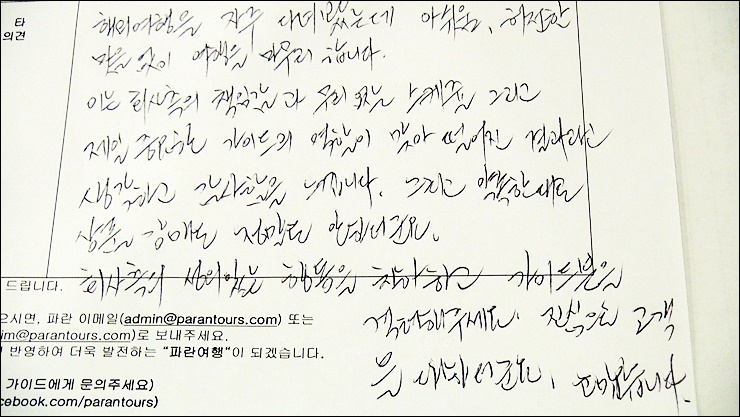 타
의견
해외여행을 자주 다녀 있는데 아쉬움, 허전한
맘을 없이 여행을 마무리 합니다.
이는 회사측의 책임감과 무리 없는 스케쥴 그리고
제일 중요한 가이드의 역할이 맞아 떨어진 결과라고
생각하고 감사함을 느낍니다. 그리고 약속한대로
상품 강매도 정말로 안 되더군요.
회사측의 성의있는 행동을 칭찬하고 가이드분을
격려해주세요. 진심으로 고객
을 대하더군요. 고맙습니다.
드립니다.
으시면, 파란 이메일(admin@parantours.com) 또는
im@parantours.com)로 보내주세요.
반영하여 더욱 발전하는 "파란여행"이 되겠습니다.
가이드에게 문의주세요)
cebook.com/parantours)